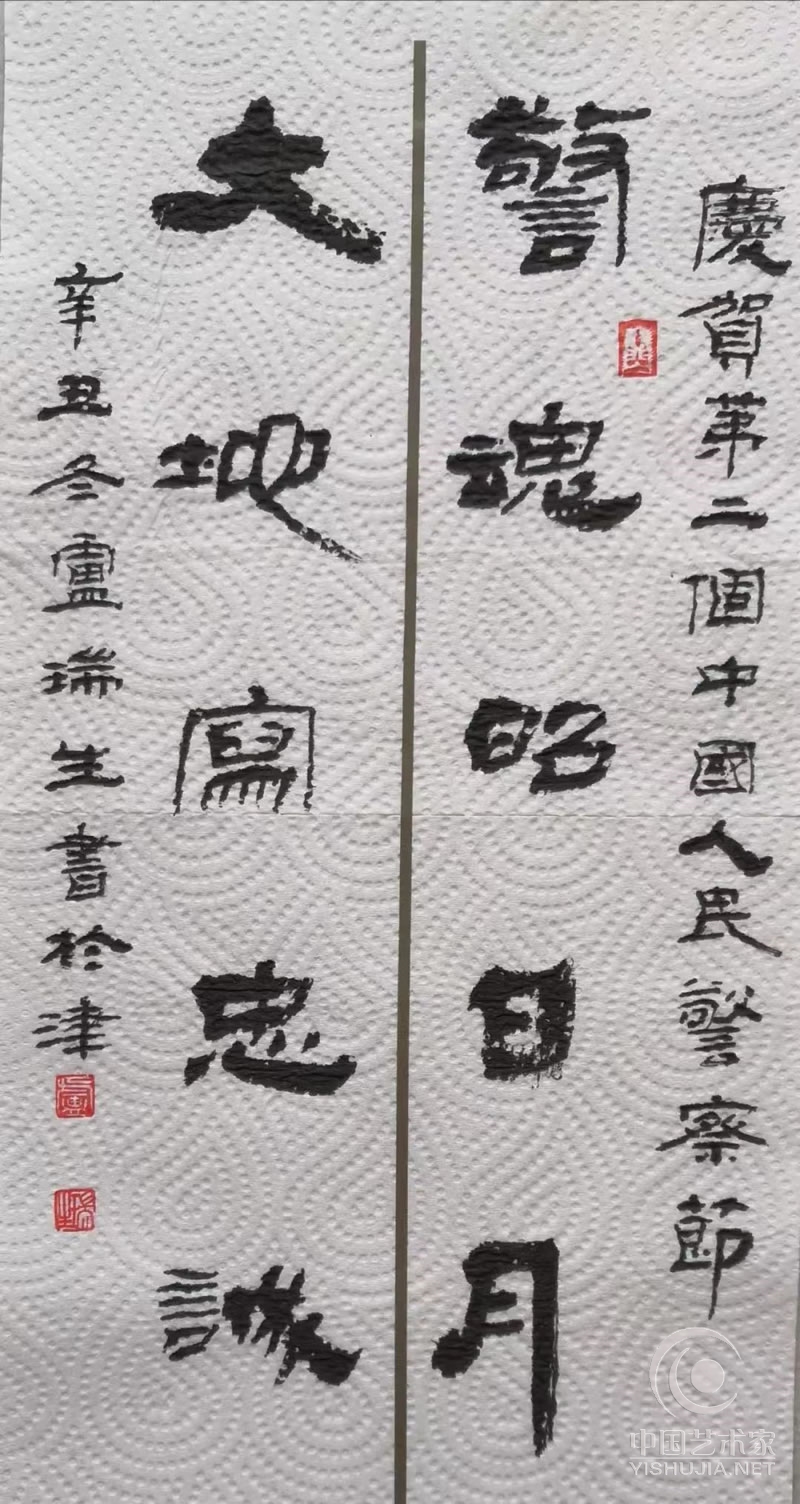 慶賀第二個中國人民警察節
警魂昭日月
大地寫忠誠
辛丑冬盧瑞生書於津
盧
中国艺术家
YISHUJIA.NET